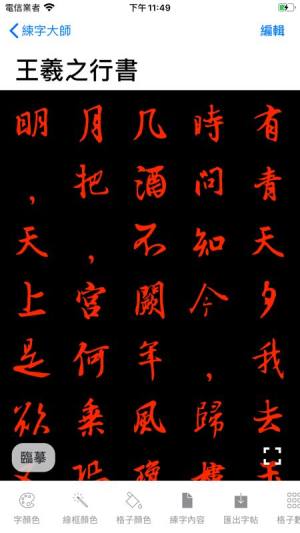 電信業者 下午11:49
練字大師 編輯
王羲之行書
明月几時有
，把酒問青
天，不知天
上宮闕今夕
是何年，我
欲乘風歸去
臨摹
字顏色 線框顏色 格子顏色 練字內容 匯出字帖 格子數